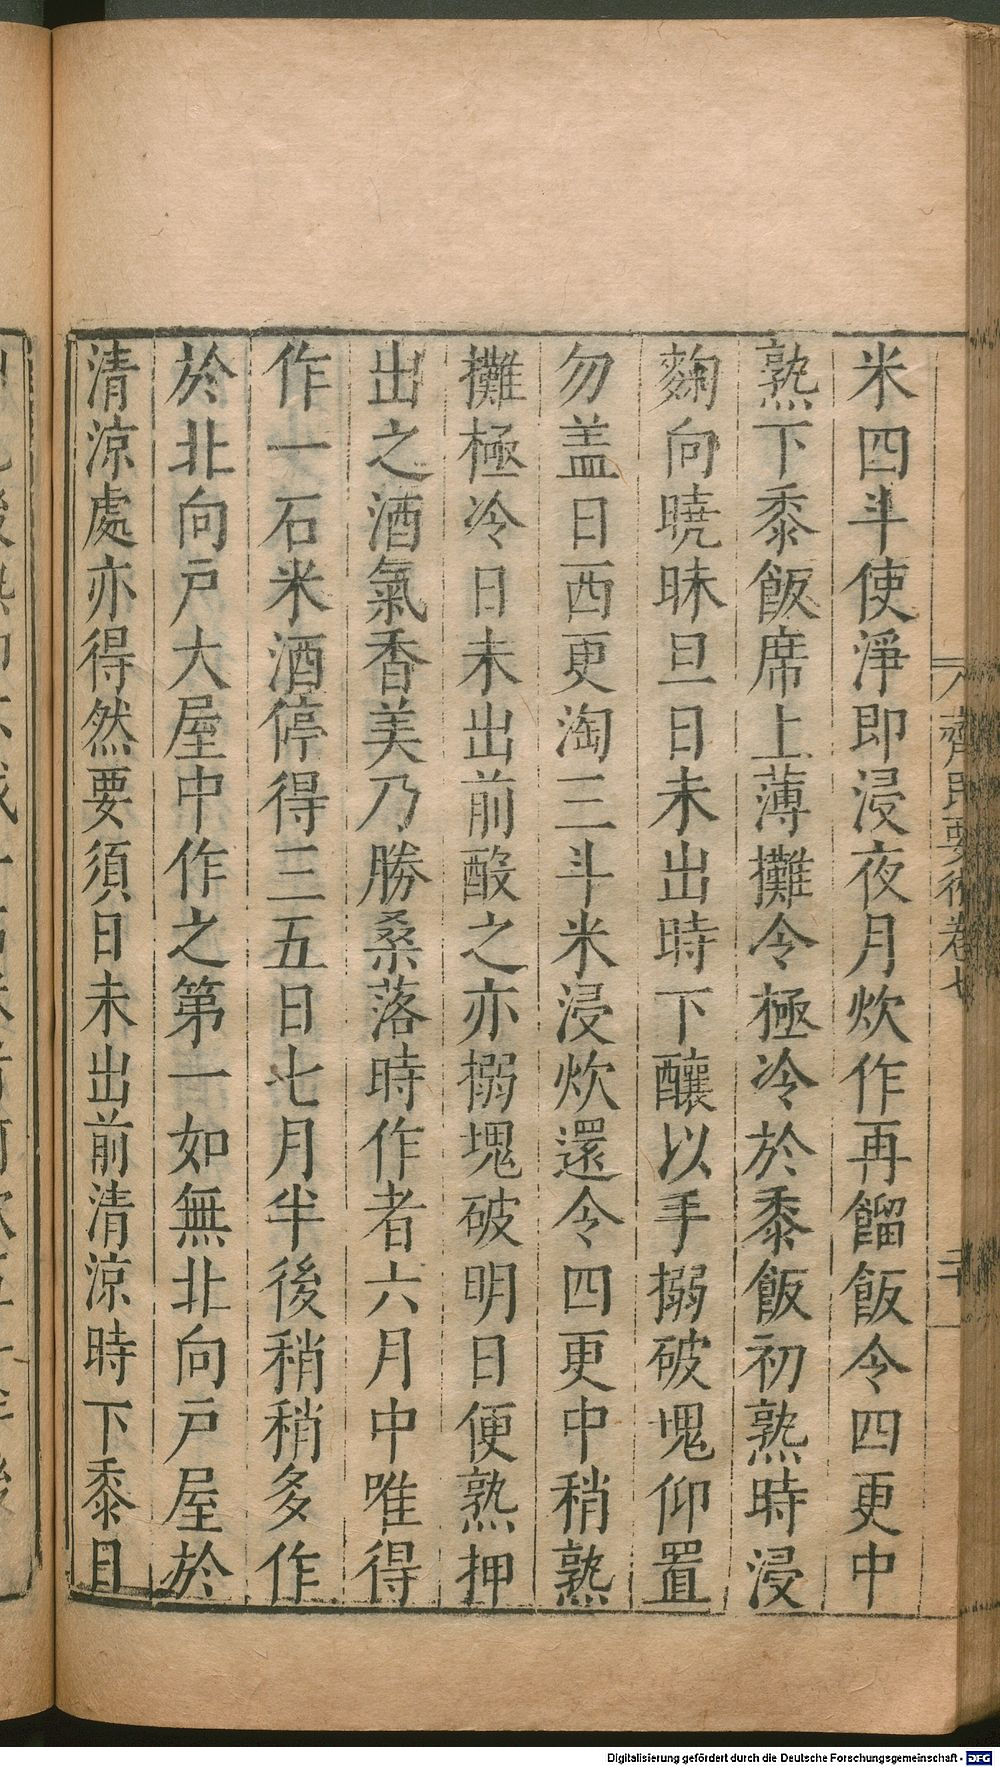 齊民要術卷七
米四斗使淨即浸夜月炊作再餾飯令四更中
熟下黍飯席上薄攤令極冷於黍飯初熟時浸
麴向曉昧旦日未出時下釀以手搦破塊仰置
勿盖日西更淘三斗米浸炊還令四更中稍熟
攤極冷日未出前酘之亦搦塊破明日便熟押
出之酒氣香美乃勝桑落時作者六月中唯得
作一石米酒停得三五日七月半後稍稍多作
於北向戸大屋中作之第一如無北向戸屋於
清涼處亦得然要須日未出前清涼時下黍目
Digitalisierung gefördert durch die Deutsche Forschungsgemeinschaft - DFG